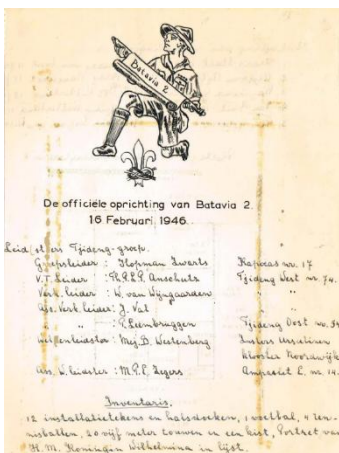 Batavia 2
De officiële oprichting van Batavia 2.
16 Februari 1946.
Leidsters Tjideng-groep.
Groepsleider : Hopman Zwarts Kapoeas nr. 17
V.T. Leider : P.R.L.P. Anschutz Tjideng West nr. 74.
Verk. leider : W. van Wijngaarden " "
Ass. Verk. leider : J. Val
" " P. Leembruggen Tjideng Oost nr.
Welpenleidster : Mej. B. Westenberg Zusters Ursulinen
Klooster Noordwijk
Ass. W. leidster : M.P.E. Zegers Ampasiet L. nr. 14.
Inventaris.
12 installatietekens en halsdoeken, 1 voetbal, 4 ten-
nisballen, 20 vijf meter touwen en een kist, Portret van
H. M. Koningin Wilhelmina in lijst.